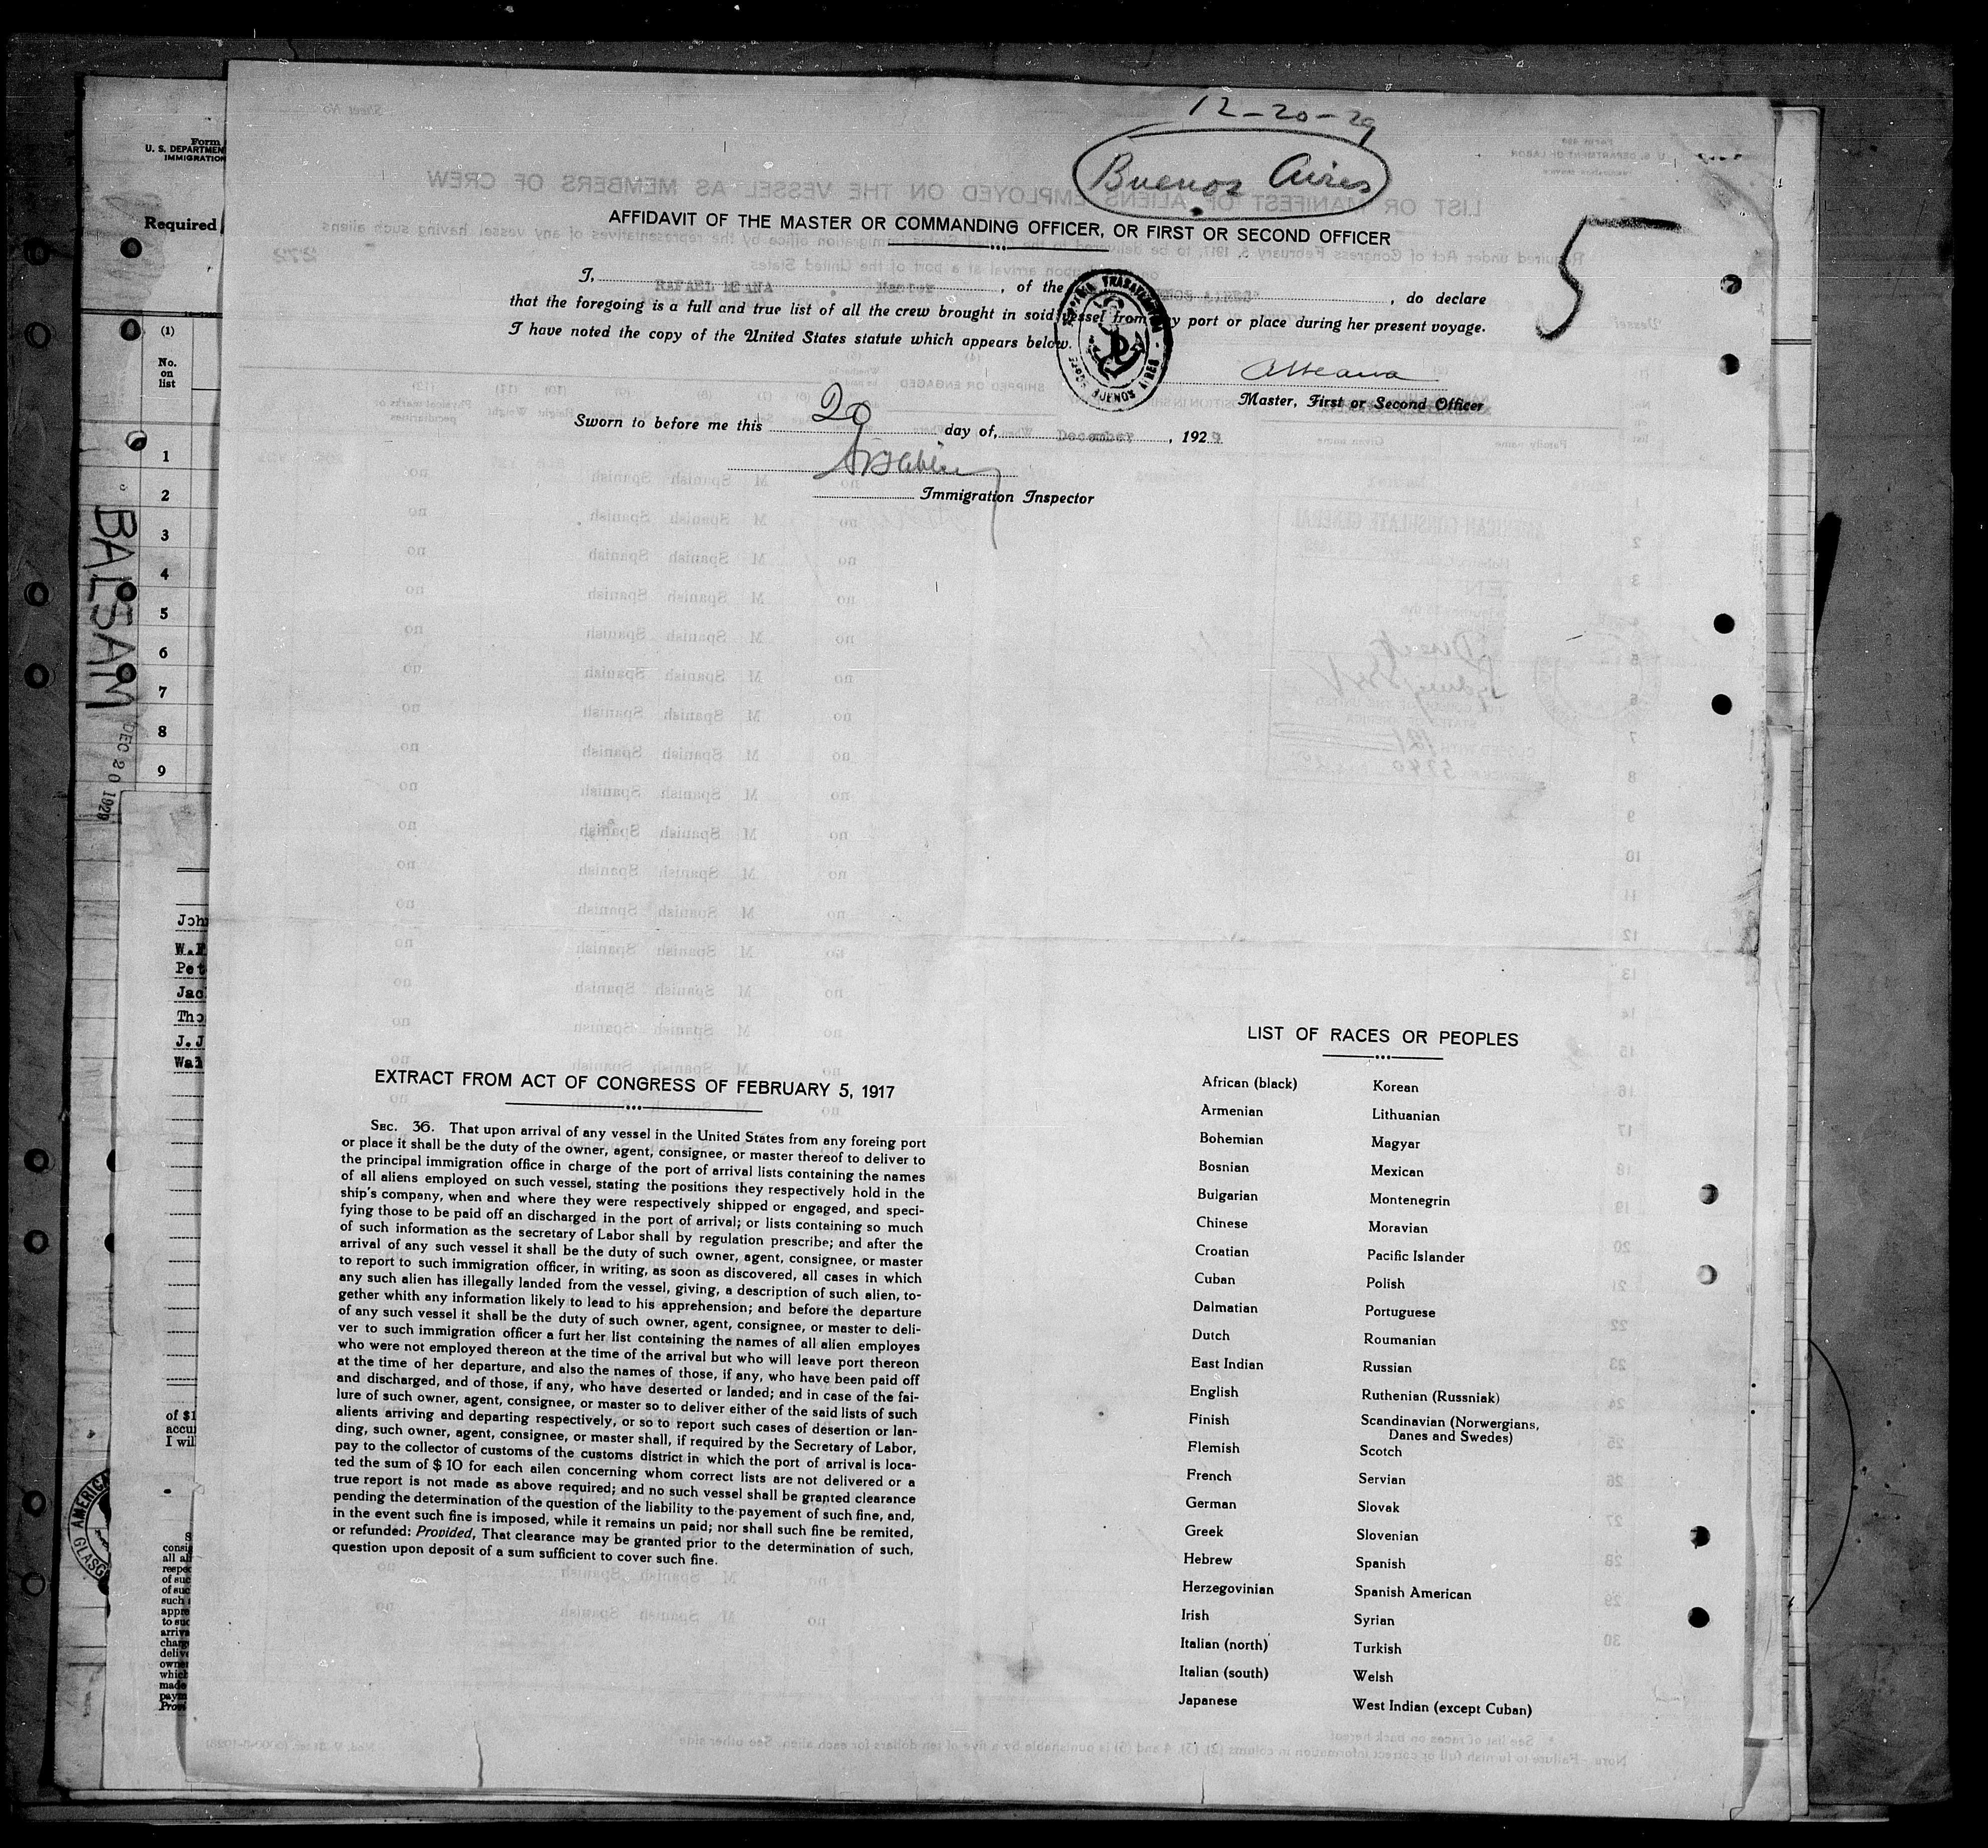 12-20-29
Buenos Aires
5
AFFIDAVIT OF THE MASTER OR COMMANDING OFFICER, OR FIRST OR SECOND OFFICER
I, RAFAEL , Master , of the BUENOS AIRES , do declare
that the foregoing is a full and true list of all the crew brought in soid vessel from any port or place during her present voyage.
I have noted the copy of the United States statute which appears below.
BUENOS AIRES
Master, First or Second Officer
Sworn to before me this 20 day of, December , 1929
Immigration Inspector
EXTRACT FROM ACT OF CONGRESS OF FEBRUARY 5, 1917
SEC. 36. That upon arrival of any vessel in the United States from any foreing port
or place it shall be the duty of the owner, agent, consignee, or master thereof to deliver to
the principal immigration office in charge of the port of arrival lists containing the names
of all aliens employed on such vessel, stating the positions they respectively hold in the
ship's company, when and where they were respectively shipped or engaged, and speci-
fying those to be paid off an discharged in the port of arrival; or lists containing so much
of such information as the secretary of Labor shall by regulation prescribe; and after the
arrival of any such vessel it shall be the duty of such owner, agent, consignee, or master
to report to such immigration officer, in writing, as soon as discovered, all cases in which
any such alien has illegally landed from the vessel, giving, a description of such alien, to-
gether whith any information likely to lead to his apprehension; and before the departure
of any such vessel it shall be the duty of such owner, agent, consignee, or master to deli-
ver to such immigration officer a furt her list containing the names of all alien employes
who were not employed thereon at the time of the arrival but who will leave port thereon
at the time of her departure, and also the names of those, if any, who have been paid off
and discharged, and of those, if any, who have deserted or landed; and in case of the fai-
lure of such owner, agent, consignee, or master so to deliver either of the said lists of such
alients arriving and departing respectively, or so to report such cases of desertion or lan-
ding, such owner, agent, consignee, or master shall, if required by the Secretary of Labor,
pay to the collector of customs of the customs district in which the port of arrival is loca-
ted the sum of $ 10 for each ailen concerning whom correct lists are not delivered or a
true report is not made as above required; and no such vessel shall be granted clearance
pending the determination of the question of the liability to the payement of such fine, and,
in the event such fine is imposed, while it remains un paid; nor shall such fine be remited,
or refunded: Provided, That clearance may be granted prior to the determination of such,
question upon deposit of a sum sufficient to cover such fine.
LIST OF RACES OR PEOPLES
African (black)
Armenian
Bohemian
Bosnian
Bulgarian
Chinese
Croatian
Cuban
Dalmatian
Dutch
East Indian
English
Finish
Flemish
French
German
Greek
Hebrew
Herzegovinian
Irish
Italian (north)
Italian (south)
Japanese
Korean
Lithuanian
Magyar
Mexican
Montenegrin
Moravian
Pacific Islander
Polish
Portuguese
Roumanian
Russian
Ruthenian (Russniak)
Scandinavian (Norwergians,
Danes and Swedes)
Scotch
Servian
Slovak
Slovenian
Spanish
Spanish American
Syrian
Turkish
Welsh
West Indian (except Cuban)
Form
U. S. DEPARTMEN
IMMIGRATION
Required
(1)
No.
on
list
1
2
3
4
5
6
7
8
9
BALSAM
DEC 20 1929
John
W.
Pet
Jac
Tho
J.J
Wal
of $1
accu
I wil
AMERICA
GLASG
consig
all ali
respec
of suc
of suc
such
appre
to suc
arriva
charg
delive
owner
which
made
paym
Provi